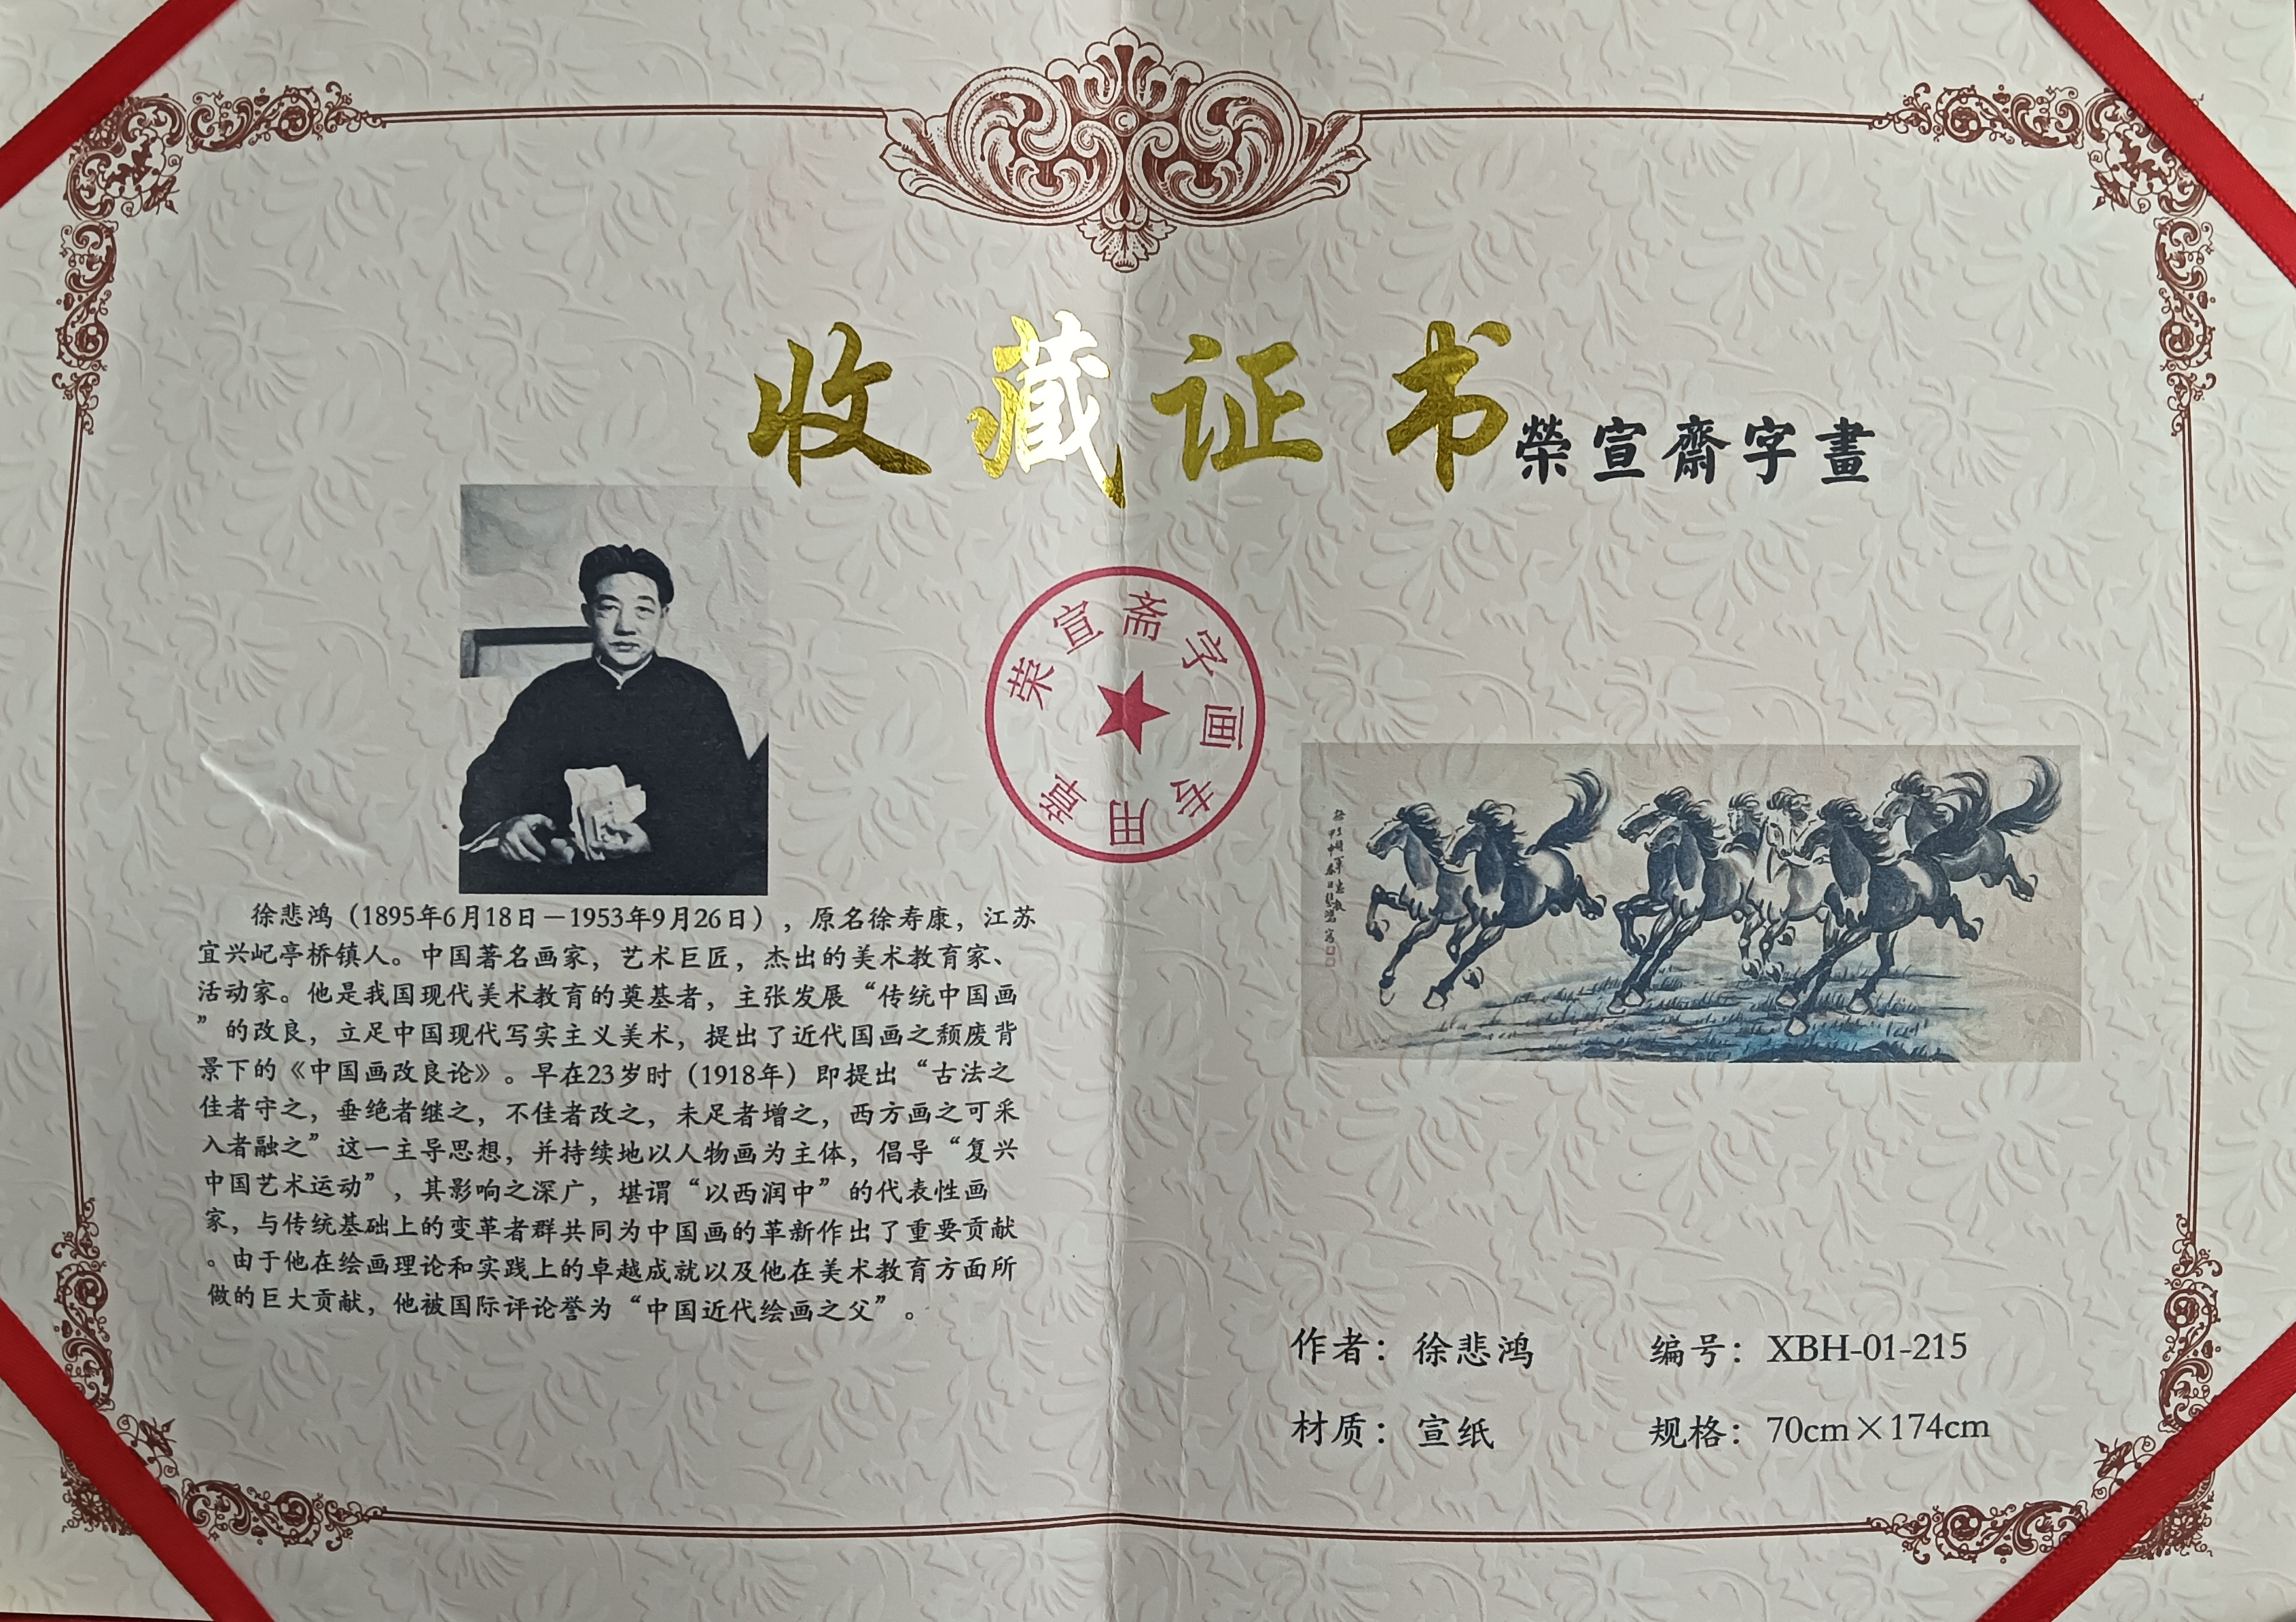 收藏证书
榮宣齋字畫
荣宣斋字画专用章
徐悲鸿（1895年6月18日－1953年9月26日），原名徐寿康，江苏
宜兴屺亭桥镇人。中国著名画家，艺术巨匠，杰出的美术教育家、
活动家。他是我国现代美术教育的奠基者，主张发展“传统中国画
”的改良，立足中国现代写实主义美术，提出了近代国画之颓废背
景下的《中国画改良论》。早在23岁时（1918年）即提出“古法之
佳者守之，垂绝者继之，不佳者改之，未足者增之，西方画之可采
入者融之”这一主导思想，并持续地以人物画为主体，倡导“复兴
中国艺术运动”，其影响之深广，堪谓“以西润中”的代表性画
家，与传统基础上的变革者群共同为中国画的革新作出了重要贡献
。由于他在绘画理论和实践上的卓越成就以及他在美术教育方面所
做的巨大贡献，他被国际评论誉为“中国近代绘画之父”。
作者：徐悲鸿
编号：XBH-01-215
材质：宣纸
规格：70cm×174cm